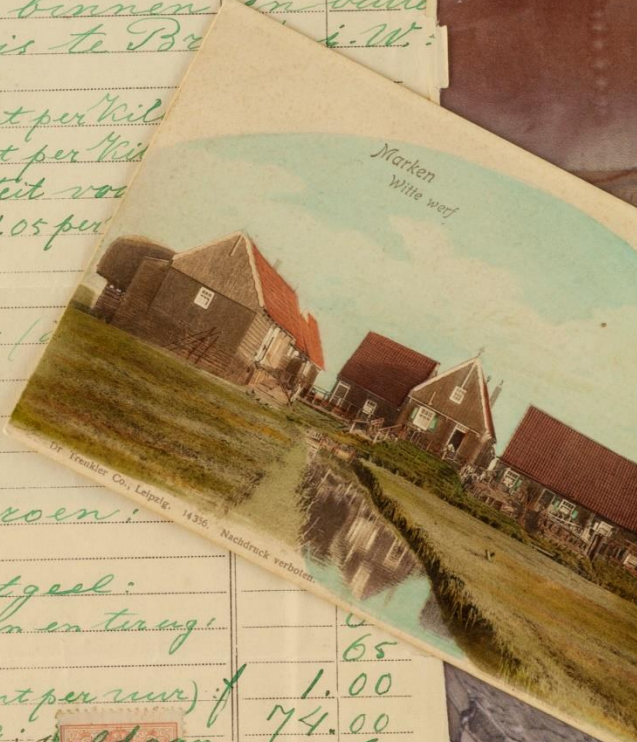 binnen en
is te Br i. W:
t per Kil
t per Ki
eit voo
.05 per
Marken
Witte werf
Dr Trenkler Co., Leipzig. 14336. Nachdruck verboten.
roen:
tgeel:
n en terug:
65
nt per uur) : f 1.00
74.00